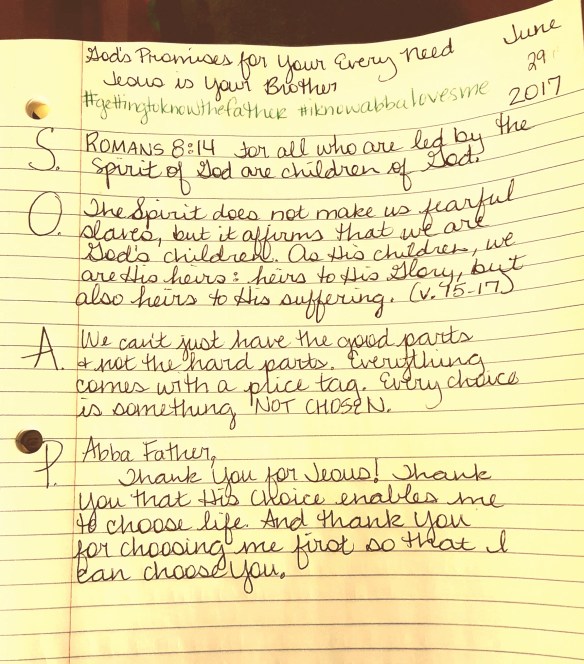 God's Promises for Your Every Need
June
Jesus is Your Brother
29
#gettingtoknowthefather #iknowabbalovesme
2017
S. ROMANS 8:14 For all who are led by the
Spirit of God are children of God.
O. The Spirit does not make us fearful
slaves, but it affirms that we are
God's children. As His children, we
are His heirs: heirs to His Glory, but
also heirs to His suffering. (v. 15-17)
A. We can't just have the good parts
& not the hard parts. Everything
comes with a price tag. Every choice
is something NOT CHOSEN.
P. Abba Father,
Thank You for Jesus! Thank
You that His choice enables me
to choose life. And thank You
for choosing me first so that I
can choose You.